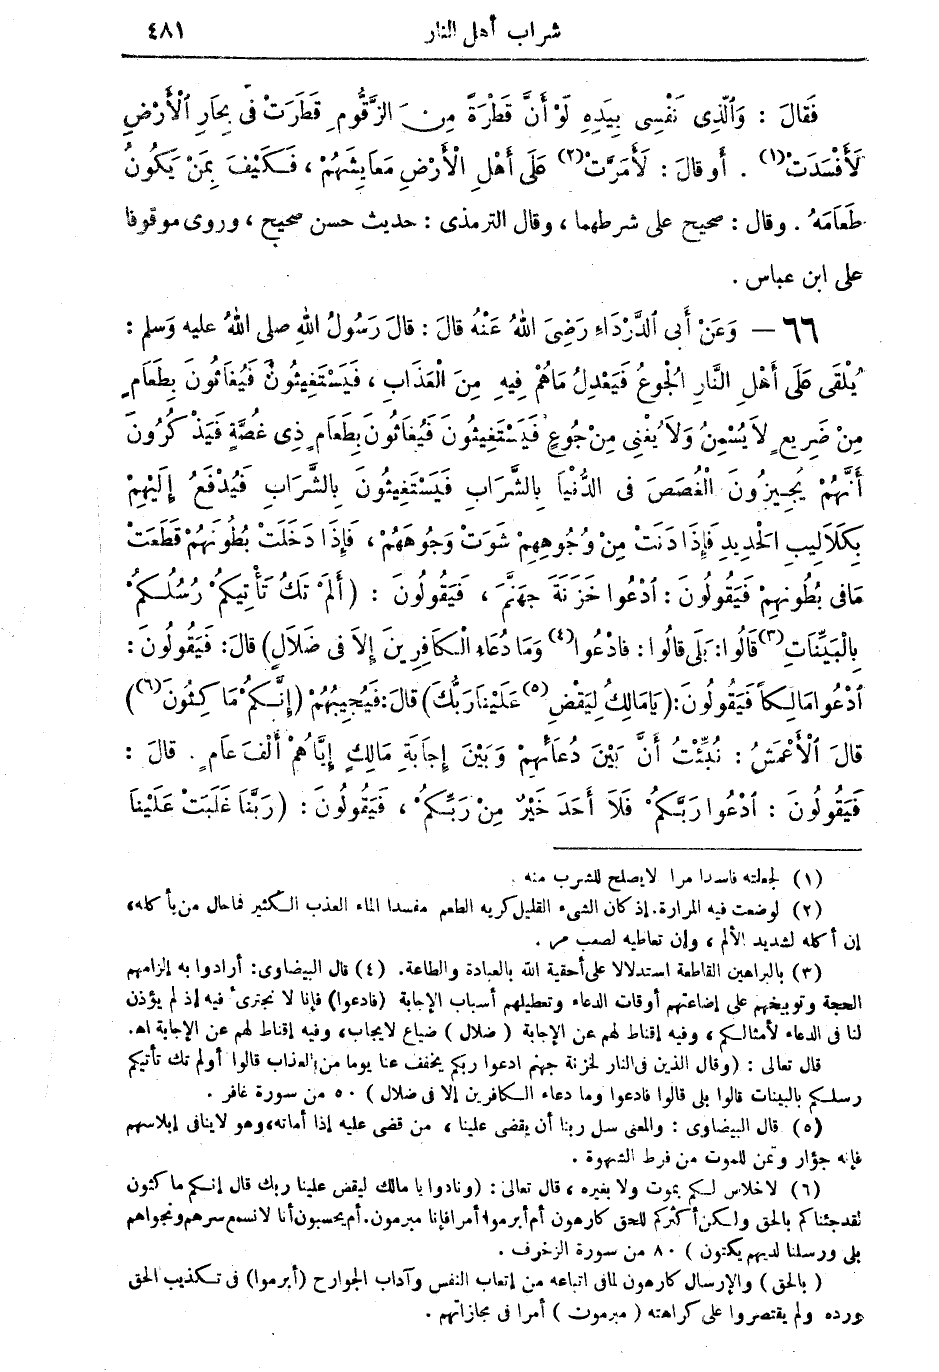 شراب أهل النار ٤٨١
فَقالَ : وَالَّذِى نَفْسِى بِيَدِهِ لَوْ أَنَّ قَطْرَةً مِنَ الزَّقُّومِ قَطَرَتْ فى بِحَارِ الْأَرْضِ
لَأَفْسَدَتْ(١) . أَو قالَ : لَأَمَرَّتْ(٢) عَلَى أَهْلِ الْأَرْضِ مَعَايِشَهُمْ ، فَكَيْفَ بِمَنْ يَكُونُ
طَعَامَهُ . وقال : صحيح على شرطهما ، وقال الترمذى : حديث حسن صحيح ، وروى موقوفا
على ابن عباس .
٦٦ — وَعَنْ أَبِى الدَّرْدَاءِ رَضِىَ اللهُ عَنْهُ قالَ : قالَ رَسُولُ اللهِ صلى اللهُ عليه وَسلم :
يُلْقَى عَلَى أَهْلِ النَّارِ الْجُوعُ فَيَعْدِلُ مَاهُمْ فِيهِ مِنَ الْعَذَابِ ، فَيَسْتَغِيثُونَ فَيُغَاثُونَ بِطَعَامٍ
مِنْ ضَرِيعٍ لاَ يُسْمِنُ وَلاَ يُغْنِى مِنْ جُوعٍ فَيَسْتَغِيثُونَ فَيُغَاثُونَ بِطَعَامٍ ذِى غُصَّةٍ فَيَذْ كُرُونَ
أَنَّهُمْ يُجِيزُونَ الْغُصَصَ فى الدُّنْيَا بِالشَّرَابِ فَيَسْتَغِيثُونَ بِالشَّرَابِ فَيُدْفَعُ إِلَيْهِمْ
بِكَلاَلِيبِ الحَدِيدِ فَإِذَا دَنَتْ مِنْ وُجُوهِهِمْ شَوَتْ وَجُوهَهُمْ ، فَإِذَا دَخَلَتْ بُطُونَهُمْ قَطَعَتْ
مَافى بُطُونِهِمْ فَيَقُولُونَ : ادْعُوا خَزَنَةَ جَهَنَّمَ ، فَيَقُولُونَ : (أَلَمْ تَكُ تَأْتِيكُمْ رُسُلُكُمْ
بِالْبَيِّنَاتِ(٣) قَالُوا : بَلَى قالُوا : فادْعُوا(٤) وَمَا دُعَاءُ الْكَافِرِينَ إِلاَ فى ضَلَالٍ) قالَ : فَيَقُولُونَ :
ادْعُوا مَالِكاً فَيَقُولُونَ : (يَا مَالِكُ لِيَقْضِ(٥) عَلَيْنَا رَبُّكَ) قالَ : فَيُجِيبُهُمْ (إِنَّكُمْ مَا كِثُونَ(٦))
قالَ الْأَعْمَشُ : نُبِّئْتُ أَنَّ بَيْنَ دُعَائِهِمْ وَبَيْنَ إِجَابَةِ مَالِكٍ إِيَّاهُمْ أَلْفَ عَامٍ . قالَ :
فَيَقُولُونَ : ادْعُوا رَبَّكُمْ فَلاَ أَحَدَ خَيْرٌ مِنْ رَبِّكُمْ ، فَيَقُولُونَ : (رَبَّنَا غَلَبَتْ عَلَيْنَا
(١) لجعلته فاسدا مرا لايصلح للشرب منه .
(٢) لوضعت فيه المرارة . إذ كان الشىء القليل كريه الطعم مفسدا الماء العذب الكثير فماحال من يأكله ،
إن أكله لشديد الألم ، وإن تعاطيه لصعب مر .
(٣) بالبراهين القاطعة استدلالا على أحقية الله بالعبادة والطاعة . (٤) قال البيضاوى : أرادوا به إلزامهم
الحجة وتوبيخهم على إضاعتهم أوقات الدعاء وتعطيلهم أسباب الإجابة (فادعوا) فإنا لا نجترىء فيه إذ لم يؤذن
لنا فى الدعاء لأمثالكم ، وفيه إقناط لهم عن الإجابة ( ضلال ) ضياع لايجاب ، وفيه إقناط لهم عن الإجابة اهـ.
قال تعالى : (وقال الذين فى النار لخزنة جهنم ادعوا ربكم يخفف عنا يوما من العذاب قالوا أولم تك تأتيكم
رسلكم بالبينات قالوا بلى قالوا فادعوا وما دعاء الكافرين إلا فى ضلال ) ٥٠ من سورة غافر .
(٥) قال البيضاوى : والمعنى سل ربنا أن يقضى علينا ، من قضى عليه إذا أماته ، وهو لاينافى إبلاسهم
فإنه جؤار وتمن للموت من فرط الشهوة .
(٦) لاخلاص لكم بموت ولا بغيره ، قال تعالى : (ونادوا يا مالك ليقض علينا ربك قال إنكم ماكثون
لقد جئناكم بالحق ولكن أكثركم للحق كارهون أم أبرموا أمرا فإنا مبرمون . أم يحسبون أنا لانسمع سرهم ونجواهم
بلى ورسلنا لديهم يكتبون ) ٨٠ من سورة الزخرف .
( بالحق ) والإرسال كارهون لما فى اتباعه من إتعاب النفس وآداب الجوارح (أبرموا) فى تكذيب الحق
ورده ولم يقتصروا على كراهته ( مبرمون ) أمرا فى مجازاتهم .